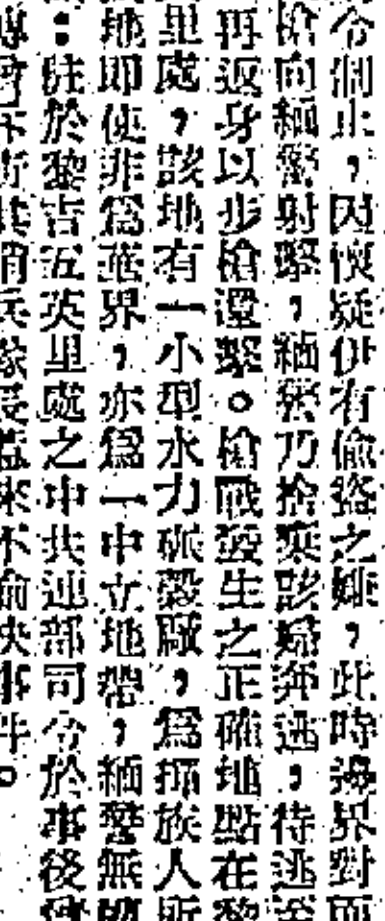 令制止，因懷疑伊有偷盜之嫌，此時邊界對面
槍向緬警射擊，緬警乃捨棄該婦奔逃，待逃至
再返身以步槍還擊。槍戰發生之正確地點在黎
里處，該地有一小型水力碾穀廠，爲撣族人所
地即使非爲華界，亦爲一中立地帶，緬警無
：駐於黎吉五英里處之中共連部司令於事後
不愉快事件。